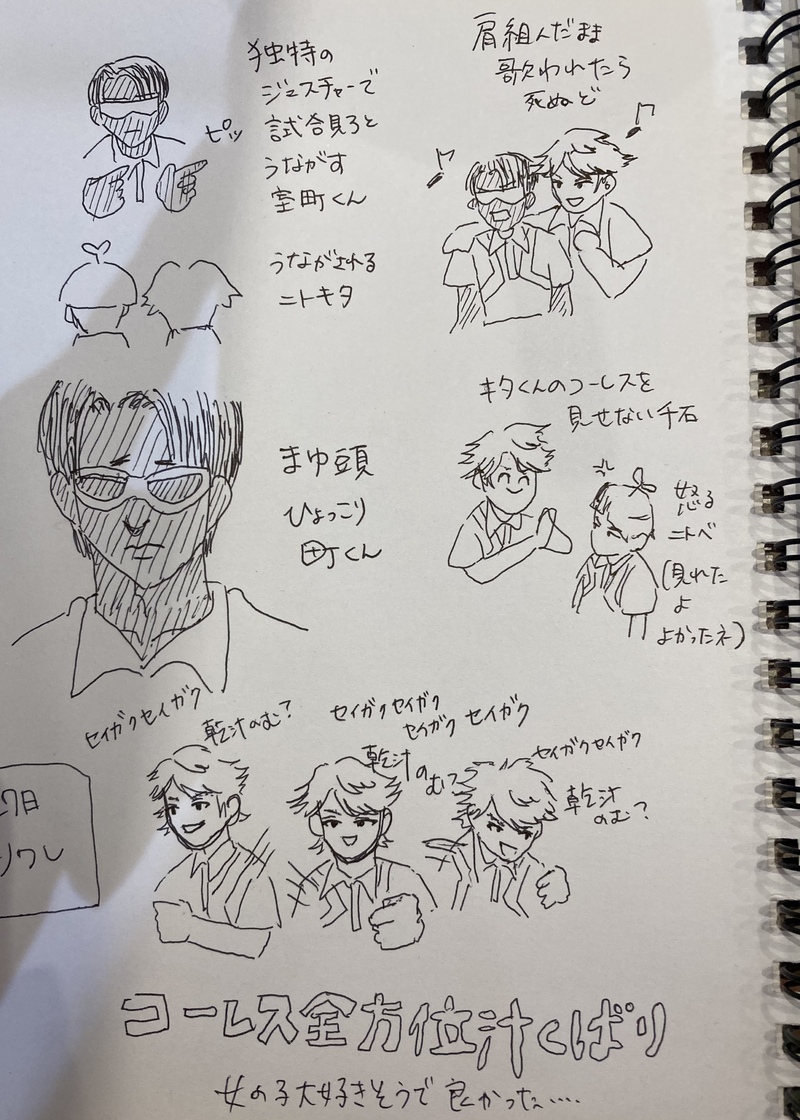 独特の
ジェスチャーで
試合見ろと
うながす
室町くん
ピッ
うながされる
ニトキタ
肩組んだまま
歌われたら
死ぬど
まゆ頭
ひょっこり
町くん
キタくんのコーレスを
見せない千石
怒る
ニトベ
(見れた
よ
よかったネ)
セイガクセイガク
乾汁のむ?
セイガクセイガク
セイガク セイガク
乾汁の
むっ
セイガクセイガク
乾汁
のむ?
7日
ソワレ
コーレス全方位汁くばり
女の子大好きそうで良かった....